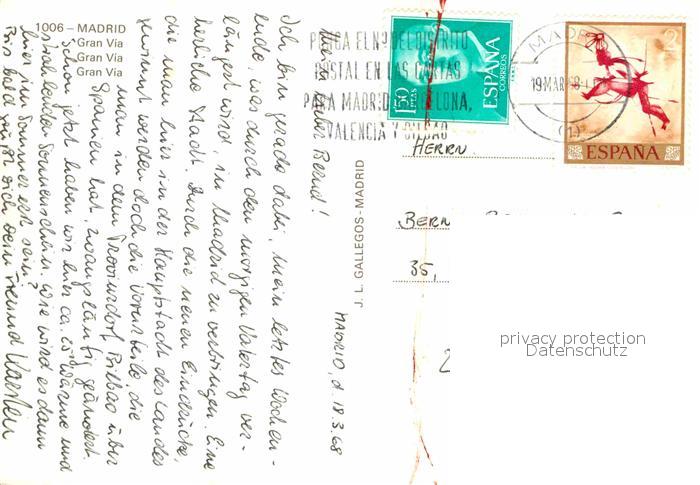 1006 – MADRID
Gran Vía
Gran Vía
Gran Vía
PONGA EL Nº DEL DISTRITO
POSTAL EN LAS CARTAS
PARA MADRID, BARCELONA,
VALENCIA Y BILBAO
MADRID
19 MAR 68
1,50
PTAS
ESPAÑA
CORREOS
2
ESPAÑA
HERRN
BERN
35,
2
J. L. GALLEGOS - MADRID
MADRID, d. 18.3.68
Mein lieber Bernd!
Ich bin gerade dabei, mein letztes Wochen-
ende, was durch den morgigen Vatertag ver-
längert wird, in Madrid zu verbringen. Eine
herrliche Stadt. Durch die neuen Eindrücke,
die man hier in der Hauptstadt des Landes
gewinnt werden doch die Vorurteile, die
man in dem Provinzdorf Bilbao über
Spanien hat, zwangsläufig geändert.
Schon jetzt haben wir hier ca. 25° Wärme und
strahlenden Sonnenschein, wie wird es dann
hier im Sommer erst sein?
Bis bald grüßt dich dein Freund
privacy protection
Datenschutz